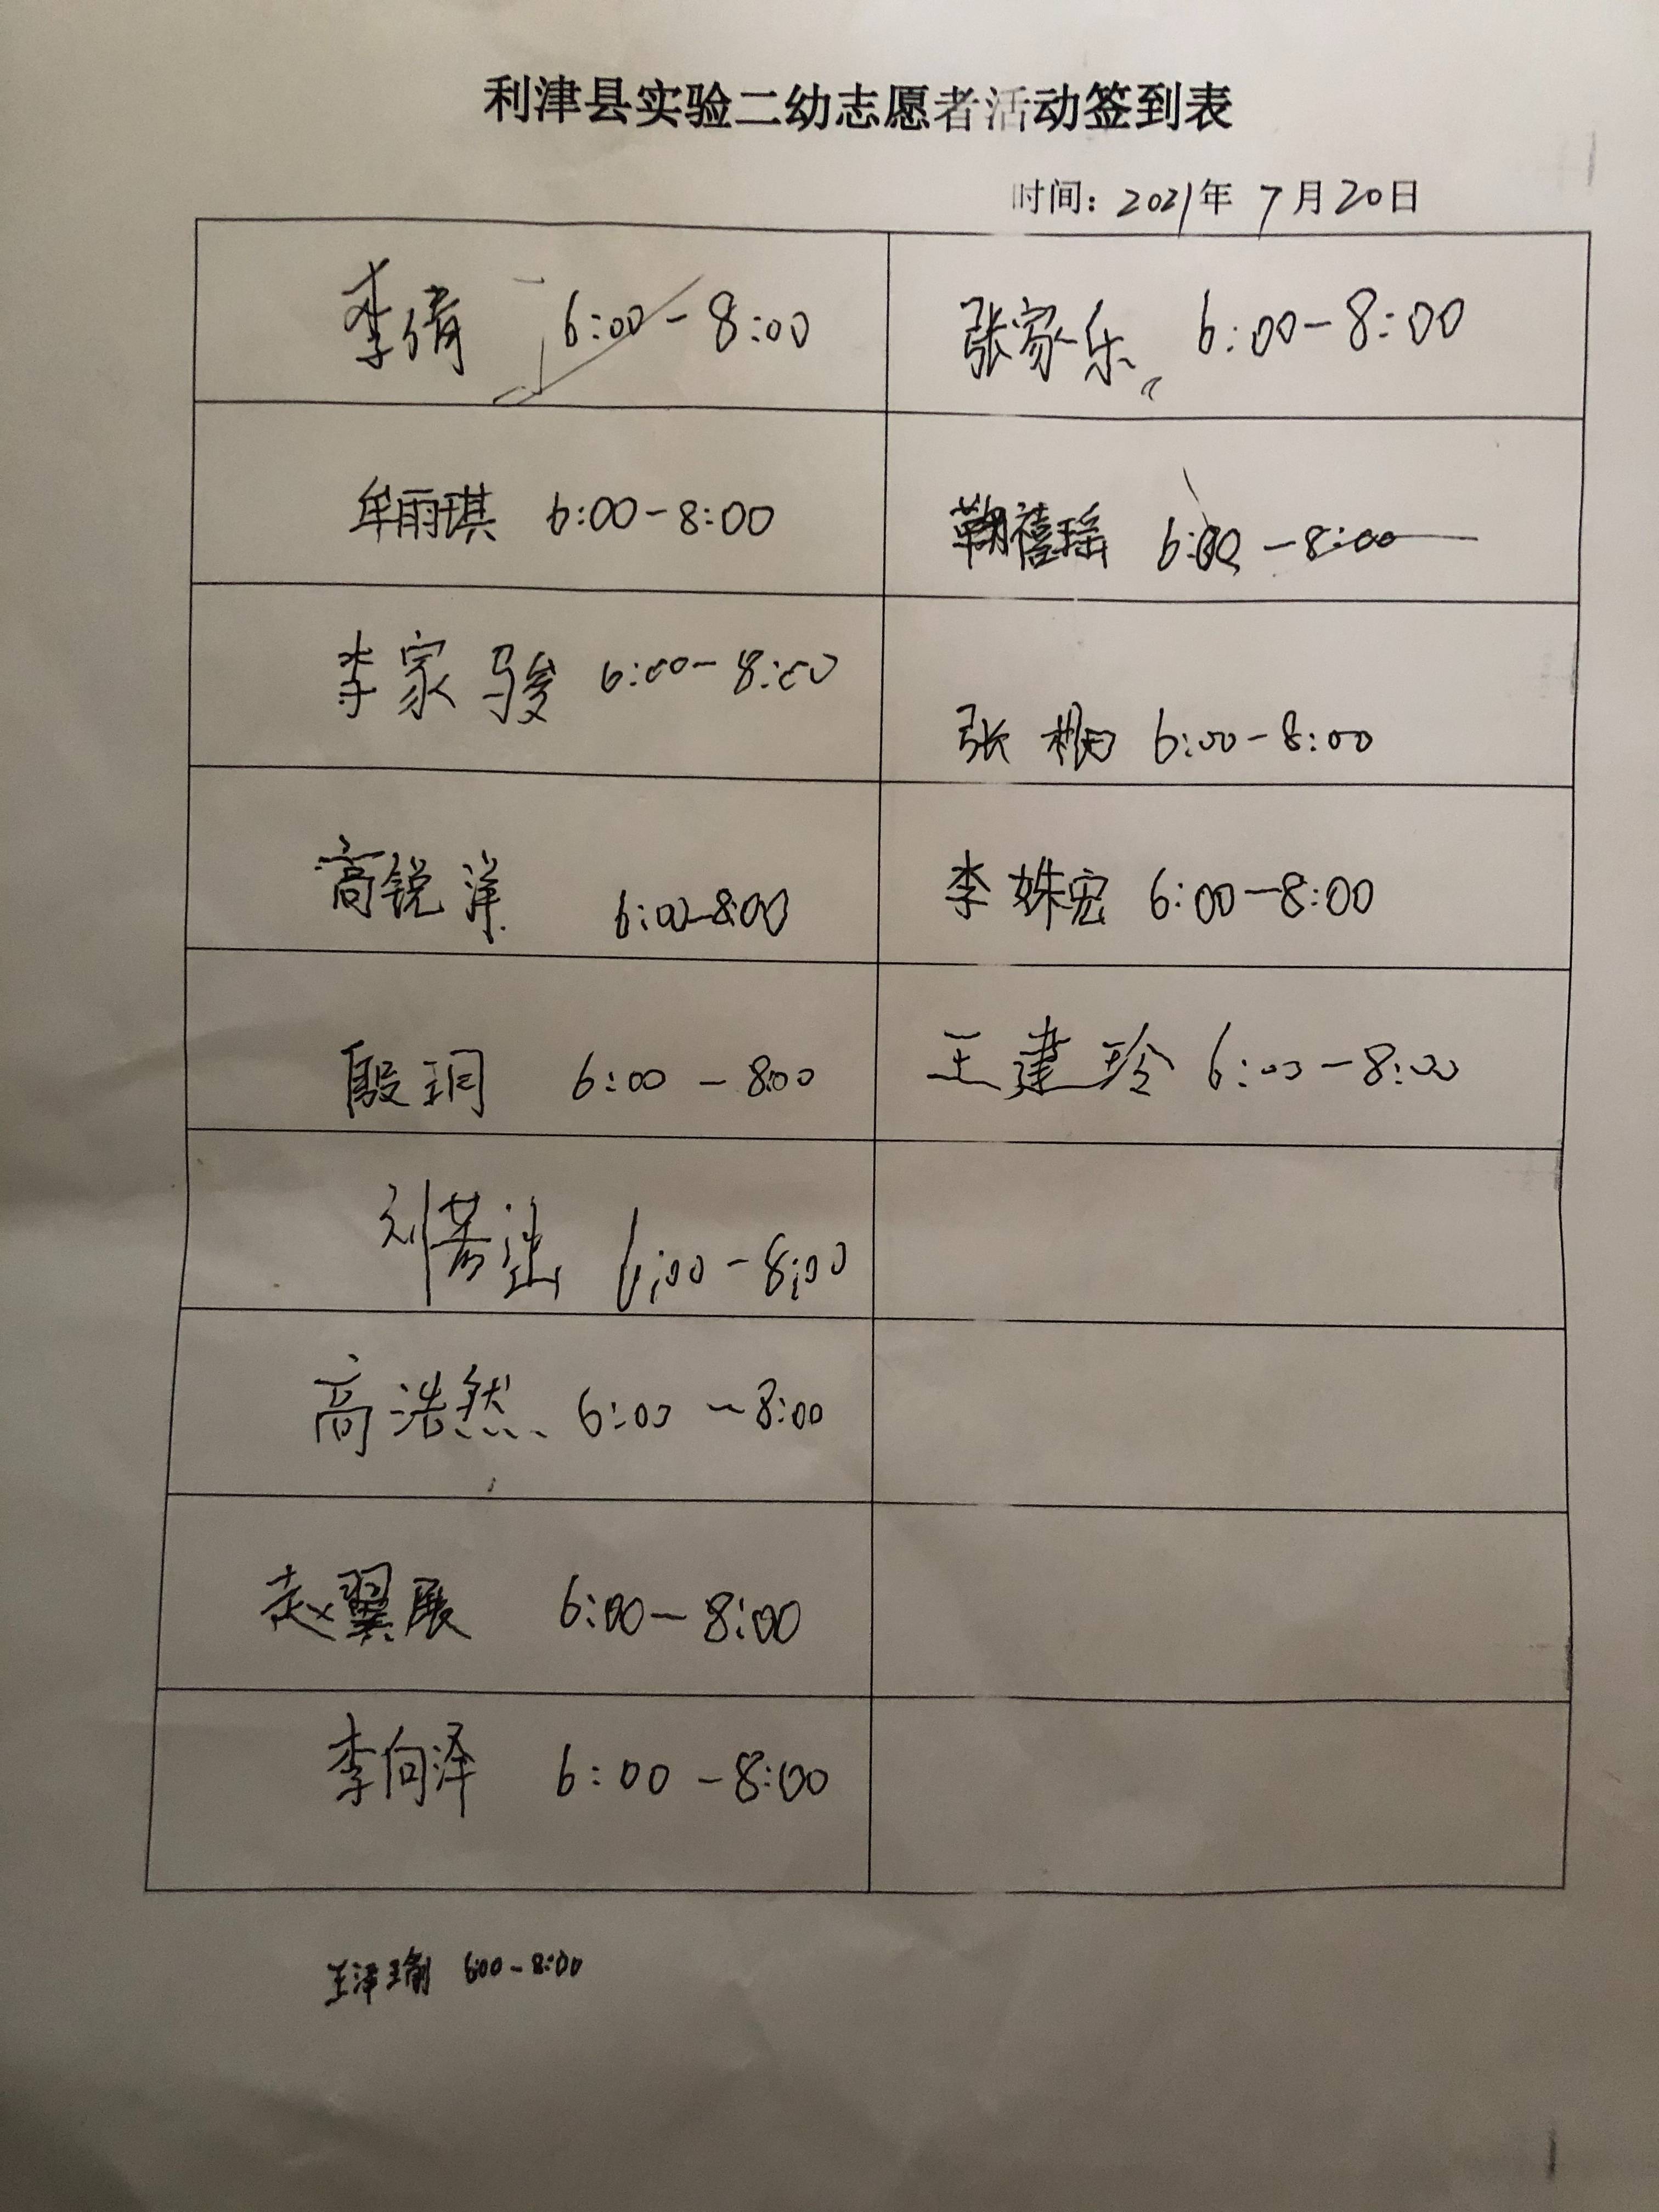 利津县实验二幼志愿者活动签到表
时间：2021年 7月20日
李倩 6:00-8:00
张家乐 6:00-8:00
牟雨琪 6:00-8:00
鞠禧瑶 6:00-8:00
李家骏 6:00-8:00
张 6:00-8:00
高锐洋 6:00-8:00
李姝宏 6:00-8:00
殷玥 6:00-8:00
王建玲 6:00-8:00
刘 6:00-8:00
高浩然 6:00-8:00
赵翼展 6:00-8:00
李向泽 6:00-8:00
王泽瑜 6:00-8:00